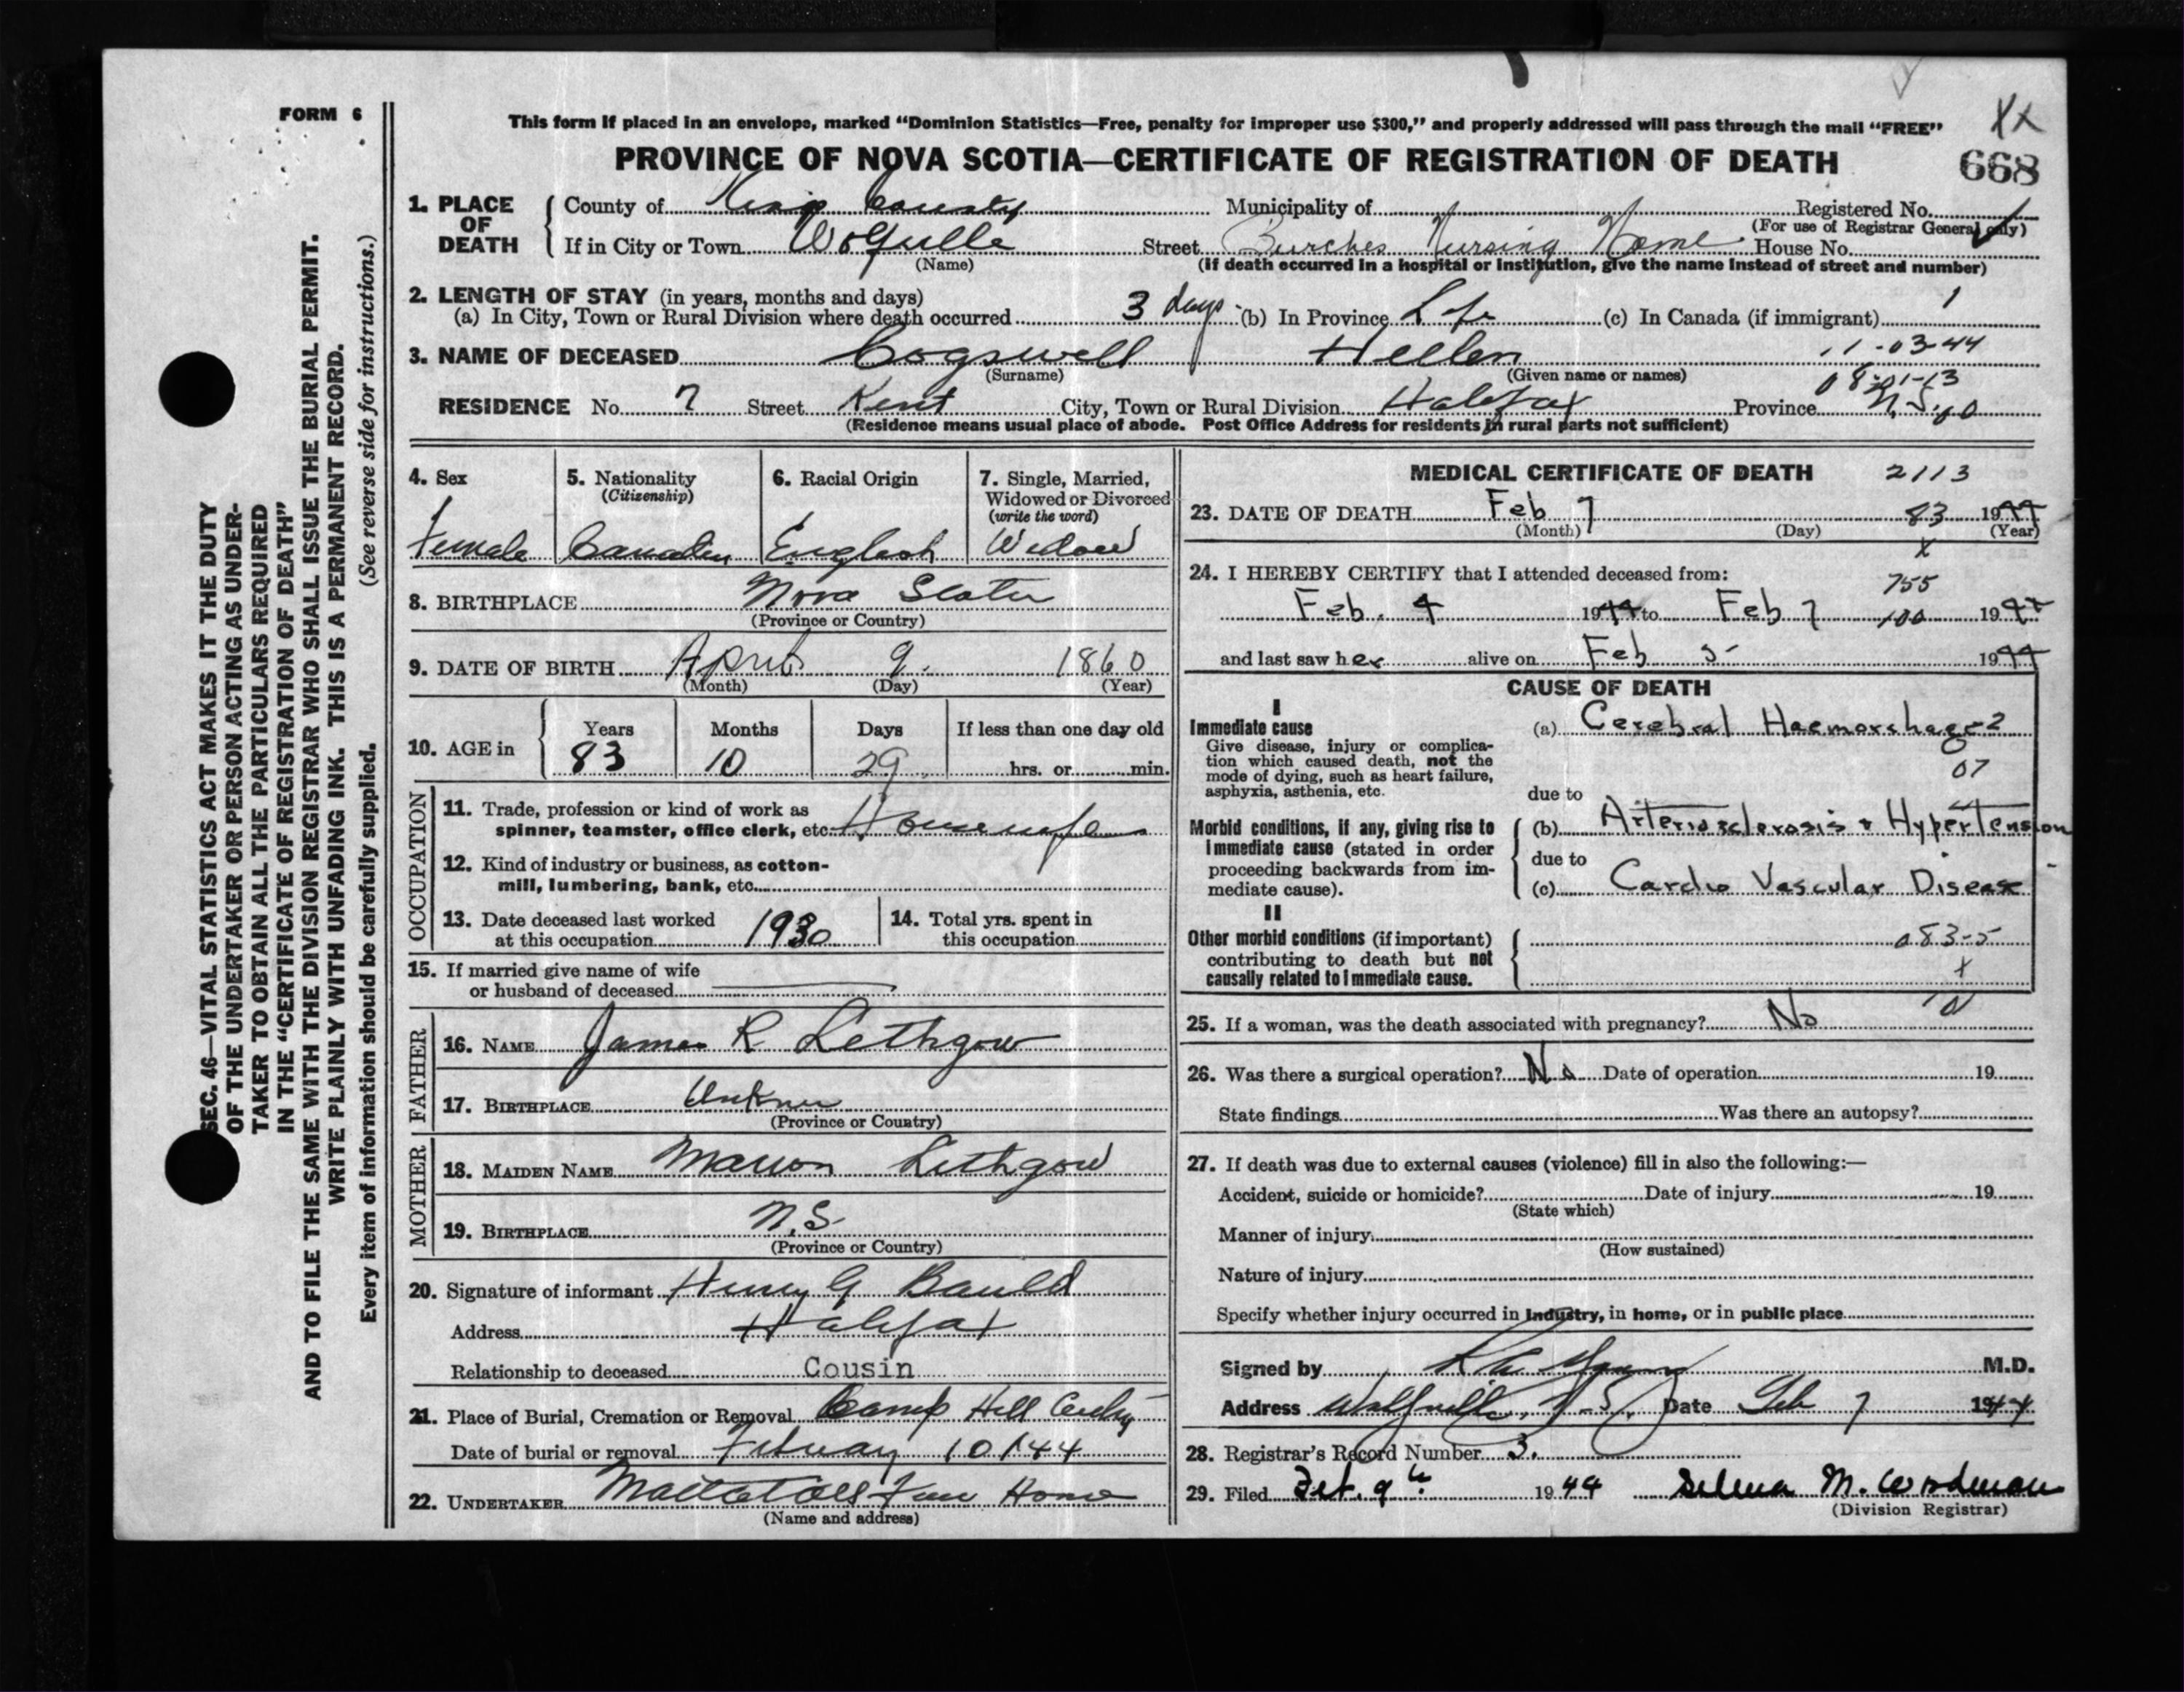 FORM 6
This form if placed in an envelope, marked “Dominion Statistics—Free, penalty for improper use $300,” and properly addressed will pass through the mail “FREE”
XX
PROVINCE OF NOVA SCOTIA—CERTIFICATE OF REGISTRATION OF DEATH
668
1. PLACE OF DEATH
County of Kings County Municipality of Registered No.
(For use of Registrar General only)
If in City or Town Wolfville Street Burches Nursing Home House No.
(Name) (If death occurred in a hospital or institution, give the name instead of street and number)
2. LENGTH OF STAY (in years, months and days)
(a) In City, Town or Rural Division where death occurred 3 days (b) In Province Life (c) In Canada (if immigrant) 1
3. NAME OF DECEASED Cogswell Hellen 11-03-44
(Surname) (Given name or names)
RESIDENCE No. 7 Street Kent City, Town or Rural Division Halifax Province N.S.
(Residence means usual place of abode. Post Office Address for residents in rural parts not sufficient)
4. Sex
Female
5. Nationality
(Citizenship)
Canadian
6. Racial Origin
English
7. Single, Married,
Widowed or Divorced
(write the word)
Widow
8. BIRTHPLACE Nova Scotia
(Province or Country)
9. DATE OF BIRTH April 9. 1860
(Month) (Day) (Year)
10. AGE in
Years Months Days If less than one day old
83 10 29 hrs. or min.
OCCUPATION
11. Trade, profession or kind of work as
spinner, teamster, office clerk, etc. Housewife
12. Kind of industry or business, as cotton-
mill, lumbering, bank, etc.
13. Date deceased last worked
at this occupation 1930
14. Total yrs. spent in
this occupation
15. If married give name of wife
or husband of deceased
FATHER
16. NAME James R Lethgow
17. BIRTHPLACE Unknown
(Province or Country)
MOTHER
18. MAIDEN NAME Marion Lethgow
19. BIRTHPLACE N.S.
(Province or Country)
20. Signature of informant Henry G Bauld
Address Halifax
Relationship to deceased Cousin
21. Place of Burial, Cremation or Removal Camp Hill
Date of burial or removal February 10/44
22. UNDERTAKER Home
(Name and address)
MEDICAL CERTIFICATE OF DEATH 2113
23. DATE OF DEATH Feb 7 83 1944
(Month) (Day) (Year)
x
24. I HEREBY CERTIFY that I attended deceased from:
755
Feb. 4 1944 to Feb 7 100 1944
and last saw her alive on Feb 5 1944
CAUSE OF DEATH
I
Immediate cause (a) Cerebral Haemorrhage 2
Give disease, injury or complica-
tion which caused death, not the
mode of dying, such as heart failure,
asphyxia, asthenia, etc.
07
due to
Morbid conditions, if any, giving rise to
immediate cause (stated in order
proceeding backwards from im-
mediate cause).
(b) Arteriosclerosis & Hypertension
due to
(c) Cardio Vascular Disease
II
Other morbid conditions (if important)
contributing to death but not
causally related to immediate cause.
083-5
x
25. If a woman, was the death associated with pregnancy? No
26. Was there a surgical operation? No Date of operation 19
State findings Was there an autopsy?
27. If death was due to external causes (violence) fill in also the following:—
Accident, suicide or homicide? Date of injury 19
(State which)
Manner of injury
(How sustained)
Nature of injury
Specify whether injury occurred in industry, in home, or in public place
Signed by Young M.D.
Address Wolfville, N.S. Date Feb 7 1944
28. Registrar's Record Number 3.
29. Filed Feb. 9th 1944 Selena M. Woodman
(Division Registrar)
SEC. 46—VITAL STATISTICS ACT MAKES IT THE DUTY
OF THE UNDERTAKER OR PERSON ACTING AS UNDER-
TAKER TO OBTAIN ALL THE PARTICULARS REQUIRED
IN THE “CERTIFICATE OF REGISTRATION OF DEATH”
AND TO FILE THE SAME WITH THE DIVISION REGISTRAR WHO SHALL ISSUE THE BURIAL PERMIT.
WRITE PLAINLY WITH UNFADING INK. THIS IS A PERMANENT RECORD.
Every item of information should be carefully supplied. (See reverse side for instructions.)